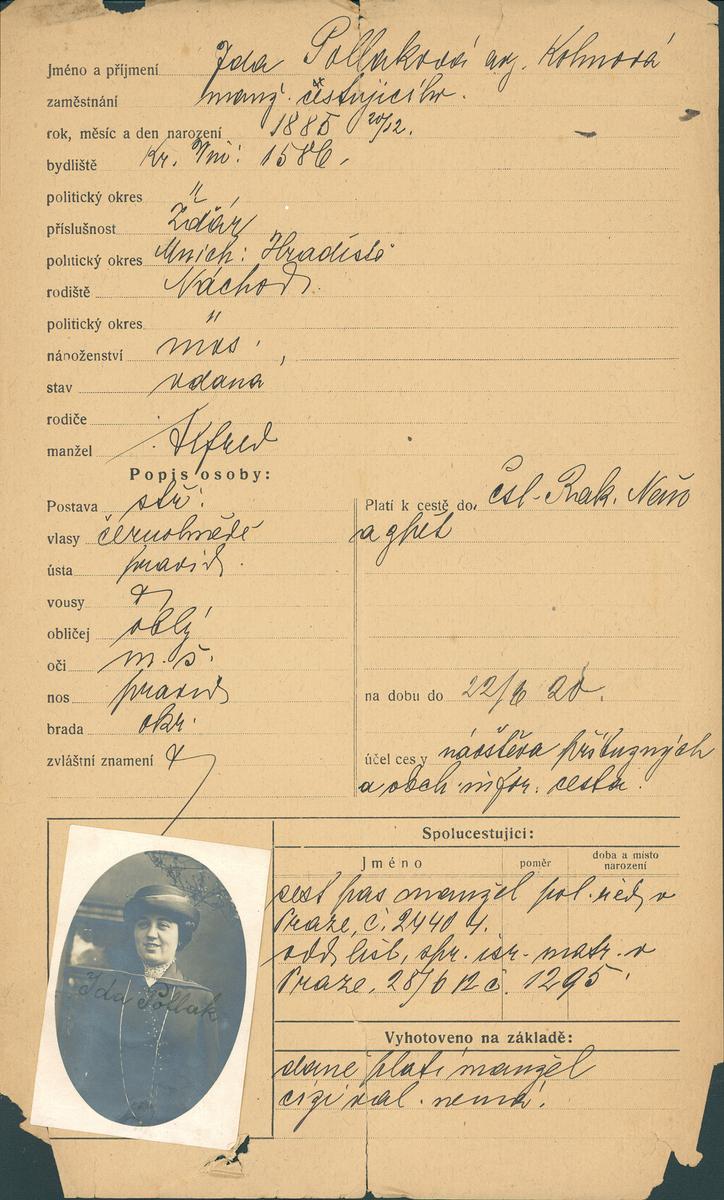 Jméno a příjmení Ida Pollaková roz. Kohnová
zaměstnání manž. cestujícího.
rok, měsíc a den narození 1885 20/12.
bydliště Kr. Vin: 1586.
politický okres "
příslušnost Ždár
politický okres Mnich: Hradiště
rodiště Náchod.
politický okres "
náboženství mos.
stav vdaná
rodiče
manžel Alfred
Popis osoby:
Postava stř.
vlasy černohnědé
ústa pravid.
vousy
obličej oblý
oči
nos pravid
brada okr.
zvláštní znamení
Platí k cestě do Čsl- Rak. Něm
a zpět
na dobu do 22/6 20.
účel cesty návštěva příbuzných
a obch. infor. cesta.
Ida Pollak
Spolucestující:
Jméno poměr doba a místo narození
cest pas manžel pol. řed. v
Praze, č. 24404.
odd. list, spr. isr. matr. v
Praze, 28/6 12 č. 1295
Vyhotoveno na základě:
daně platí manžel
cizí val. nemá.